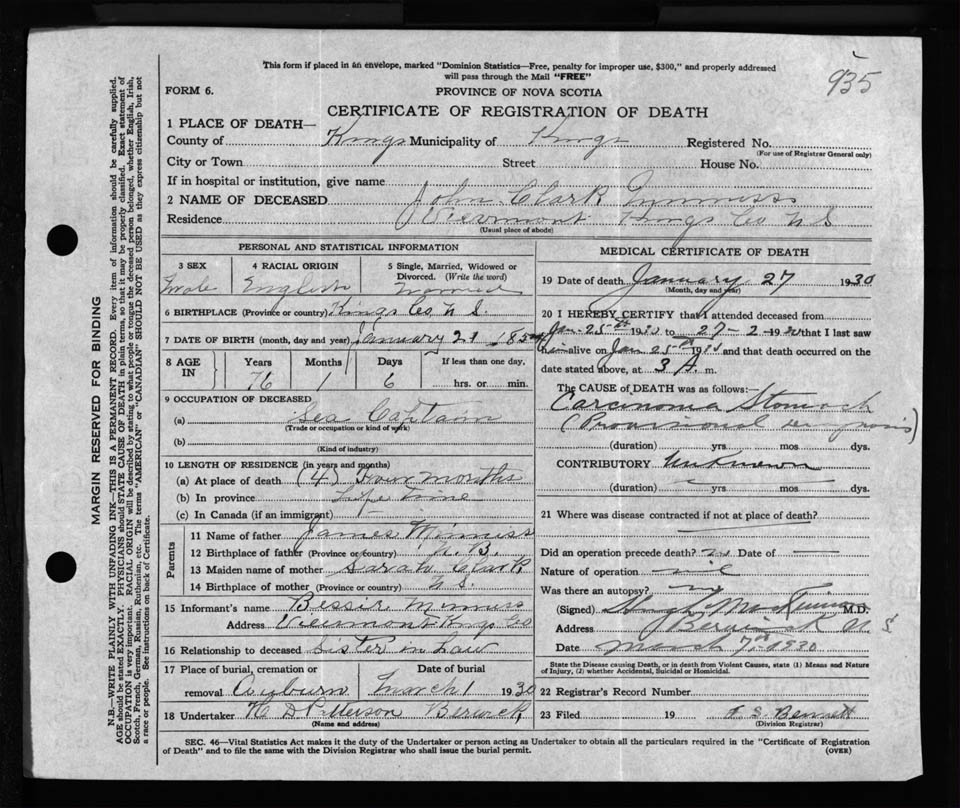 935
This form if placed in an envelope, marked "Dominion Statistics—Free, penalty for improper use, $300," and properly addressed
will pass through the Mail "FREE"
FORM 6.
PROVINCE OF NOVA SCOTIA
CERTIFICATE OF REGISTRATION OF DEATH
1 PLACE OF DEATH—
County of Kings Municipality of Kings Registered No.
(For use of Registrar General only)
City or Town Street House No.
If in hospital or institution, give name
2 NAME OF DECEASED John Clark
Residence Viewmont Kings Co N S
(Usual place of abode)
PERSONAL AND STATISTICAL INFORMATION
3 SEX 4 RACIAL ORIGIN 5 Single, Married, Widowed or
Divorced. (Write the word)
Male English Married
6 BIRTHPLACE (Province or country) Kings Co N S.
7 DATE OF BIRTH (month, day and year) January 21 185
8 AGE IN Years Months Days If less than one day,
76 1 6 hrs. or min.
9 OCCUPATION OF DECEASED
(a) Sea Captain
(Trade or occupation or kind of work)
(b)
(Kind of industry)
10 LENGTH OF RESIDENCE (in years and months)
(a) At place of death (4) Four months
(b) In province Life Time
(c) In Canada (if an immigrant)
Parents
11 Name of father James Minniss
12 Birthplace of father (Province or country) N. B.
13 Maiden name of mother Sarah Clark
14 Birthplace of mother (Province or country) N S.
15 Informant's name Bessie Minniss
Address Viewmont Kings Co
16 Relationship to deceased Sister in Law
17 Place of burial, cremation or Date of burial
removal Auburn March 1 1930
18 Undertaker H D Patterson Berwick
(Name and address)
MEDICAL CERTIFICATE OF DEATH
19 Date of death January 27 1930
(Month, day and year)
20 I HEREBY CERTIFY that I attended deceased from
Jan. 25th 1930 to 27-2-1930 that I last saw
him alive on Jan 25th 19 and that death occurred on the
date stated above, at 3 A. m.
The CAUSE of DEATH was as follows:—
Carcinoma Stomach
(Provisional diagnosis)
(duration) yrs mos dys.
CONTRIBUTORY Unknown
(duration) yrs mos dys.
21 Where was disease contracted if not at place of death?
Did an operation precede death? no Date of —
Nature of operation nil
Was there an autopsy? no
(Signed) Hugh M.D.
Address Berwick N S
Date March 7th 1930
State the Disease causing Death, or in death from Violent Causes, state (1) Means and Nature
of Injury, (2) whether Accidental, Suicidal or Homicidal.
22 Registrar's Record Number
23 Filed 19 F. S. Bennett
(Division Registrar)
SEC. 46—Vital Statistics Act makes it the duty of the Undertaker or person acting as Undertaker to obtain all the particulars required in the "Certificate of Registration
of Death" and to file the same with the Division Registrar who shall issue the burial permit.
(OVER)
MARGIN RESERVED FOR BINDING
N.B.—WRITE PLAINLY WITH UNFADING INK—THIS IS A PERMANENT RECORD. Every item of information should be carefully supplied.
AGE should be stated EXACTLY. PHYSICIANS should STATE CAUSE OF DEATH in plain terms, so that it may be properly classified. Exact statement of
OCCUPATION is very important. RACIAL ORIGIN will be described by stating to what people or tongue the deceased person belonged, whether English, Irish,
Scotch, French, German, Russian, Ruthenian, etc. The terms "AMERICAN" or "CANADIAN" SHOULD NOT BE USED as they express citizenship but not
a race or people. See instructions on back of Certificate.